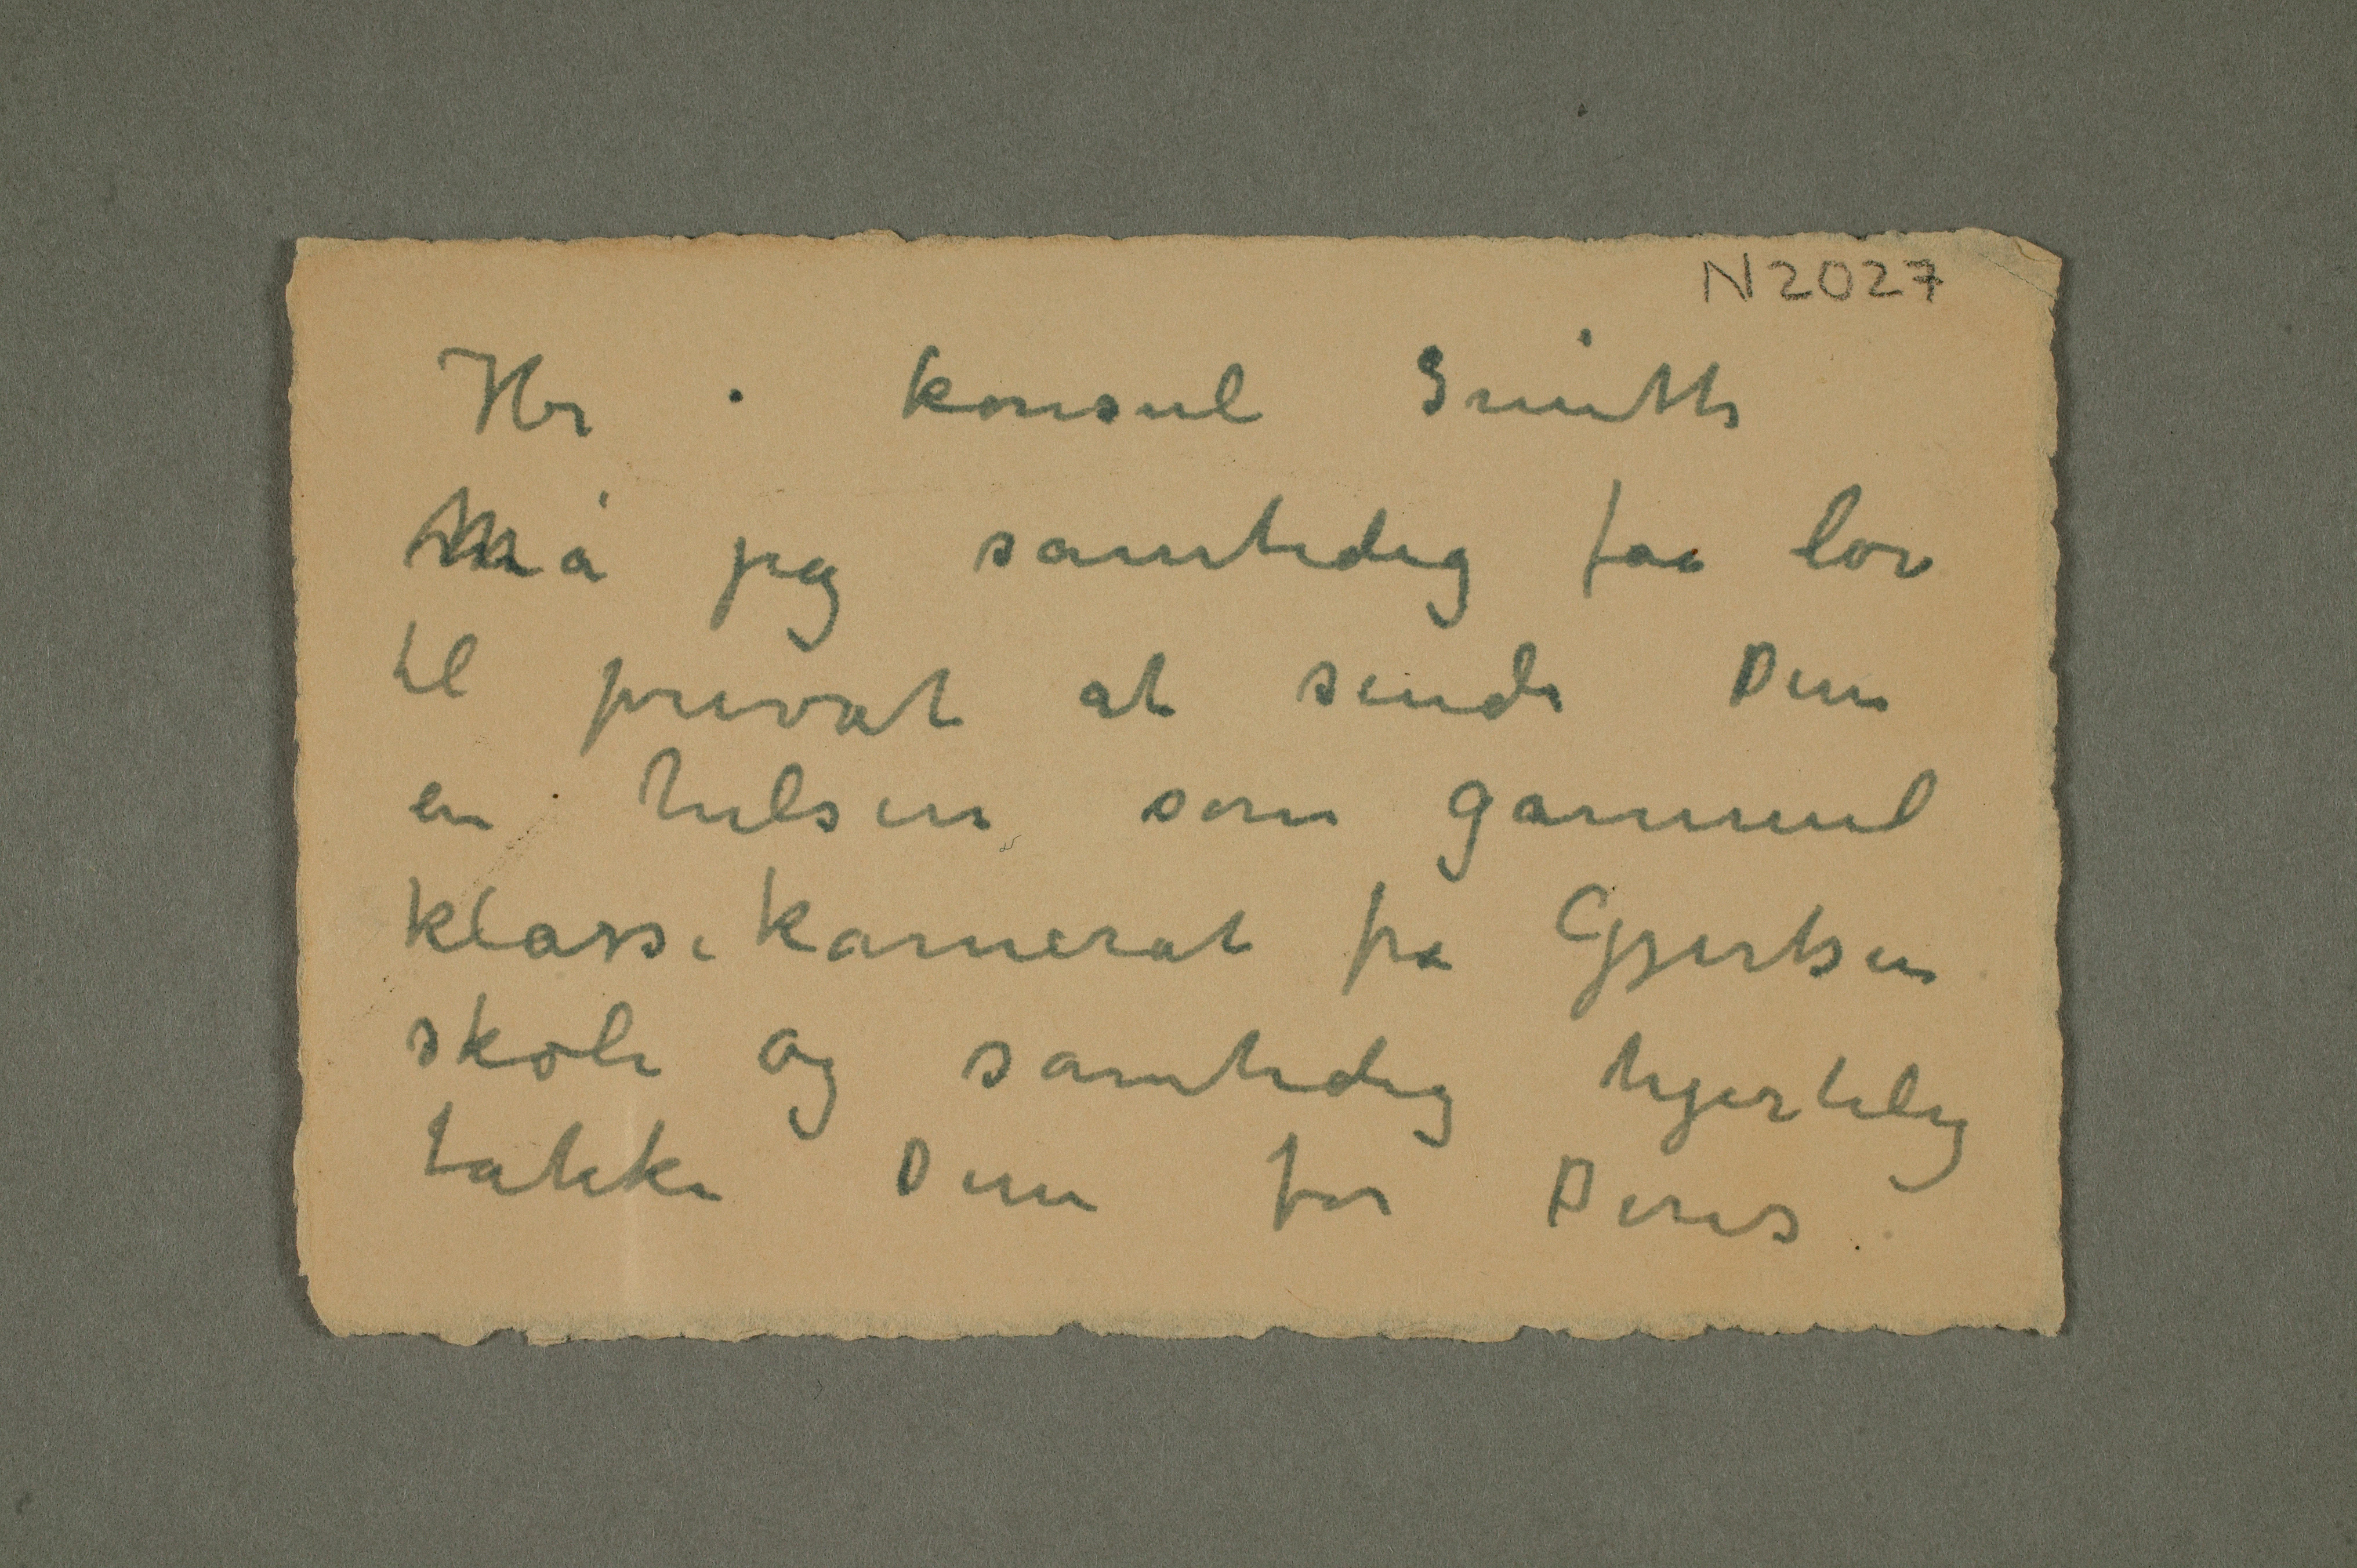 N 2027
Hr. konsul Smith
Må jeg samtidig faa lov
til privat at sende Dem
en hilsen som gammel
klassekamerat fra Gjertsen
skole og samtidig hjertelig
takke Dem for Deres